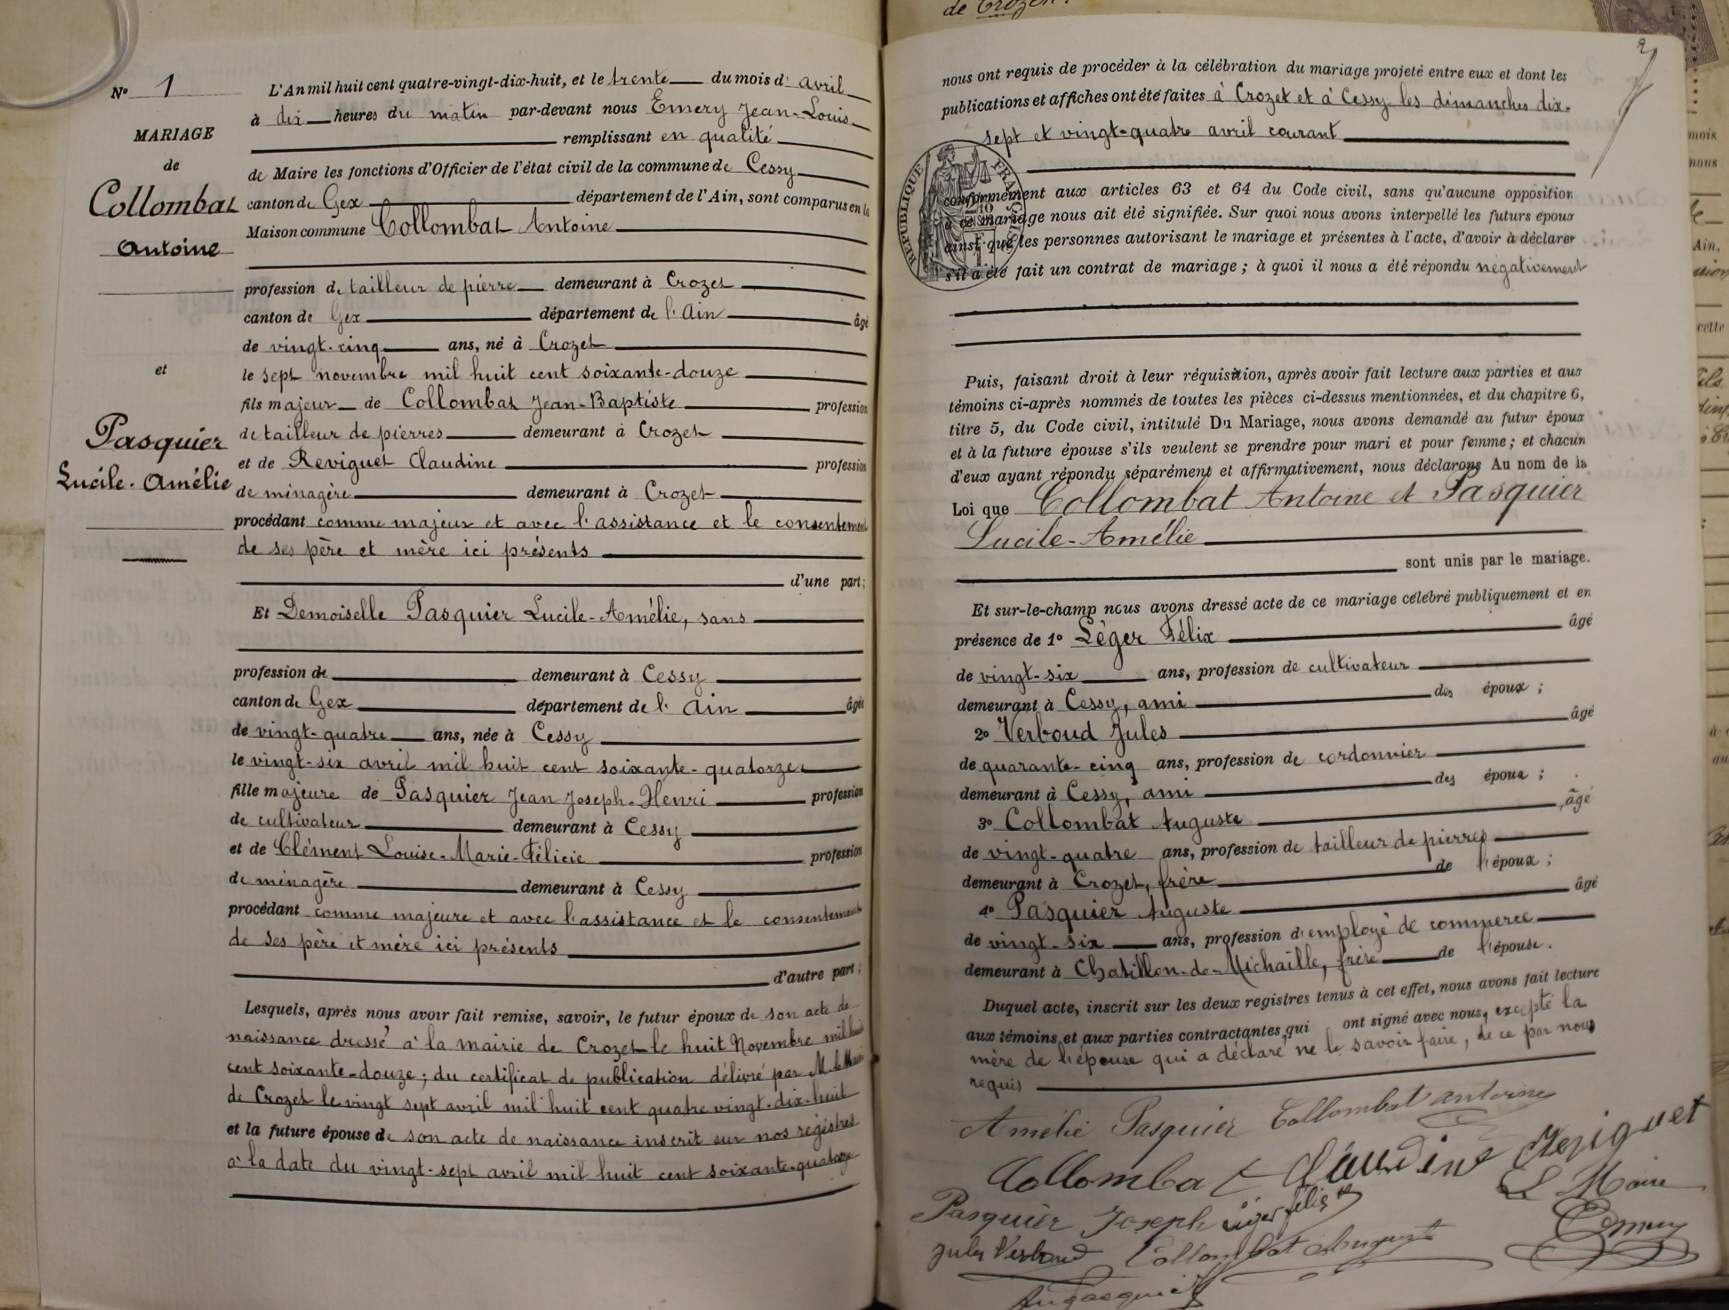 de Crozet.
Nº 1
MARIAGE
de
Collombat
Antoine
et
Pasquier
Lucile-Amélie
L'An mil huit cent quatre-vingt-dix-huit, et le trente du mois d'avril
à dix heures du matin par-devant nous Emery Jean-Louis
remplissant en qualité
de Maire les fonctions d'Officier de l'état civil de la commune de Cessy
canton de Gex département de l'Ain, sont comparus en la
Maison commune Collombat Antoine
profession de tailleur de pierre demeurant à Crozet
canton de Gex département de l'Ain âgé
de vingt-cinq ans, né à Crozet
le sept novembre mil huit cent soixante-douze
fils majeur de Collombat Jean-Baptiste profession
de tailleur de pierres demeurant à Crozet
et de Reviguet Claudine profession
de ménagère demeurant à Crozet
procédant comme majeur et avec l'assistance et le consentement
de ses père et mère ici présents
d'une part;
Et Demoiselle Pasquier Lucile-Amélie, sans
profession de demeurant à Cessy
canton de Gex département de l'Ain âgée
de vingt-quatre ans, née à Cessy
le vingt-six avril mil huit cent soixante-quatorze
fille majeure de Pasquier Jean Joseph-Henri profession
de cultivateur demeurant à Cessy
et de Clément Louise-Marie-Félicie profession
de ménagère demeurant à Cessy
procédant comme majeure et avec l'assistance et le consentement
de ses père et mère ici présents
d'autre part;
Lesquels, après nous avoir fait remise, savoir, le futur époux de son acte de
naissance dressé à la mairie de Crozet le huit Novembre mil huit
cent soixante-douze; du certificat de publication délivré par M. le Maire
de Crozet le vingt sept avril mil huit cent quatre vingt-dix-huit
et la future épouse de son acte de naissance inscrit sur nos registres
à la date du vingt-sept avril mil huit cent soixante-quatorze
2
nous ont requis de procéder à la célébration du mariage projeté entre eux et dont les
publications et affiches ont été faites à Crozet et à Cessy les dimanches dix-
sept et vingt-quatre avril courant
RÉPUBLIQUE FRANÇAISE
conformément aux articles 63 et 64 du Code civil, sans qu'aucune opposition
à ce mariage nous ait été signifiée. Sur quoi nous avons interpellé les futurs époux
ainsi que les personnes autorisant le mariage et présentes à l'acte, d'avoir à déclarer
s'il a été fait un contrat de mariage; à quoi il nous a été répondu négativement
Puis, faisant droit à leur réquisition, après avoir fait lecture aux parties et aux
témoins ci-après nommés de toutes les pièces ci-dessus mentionnées, et du chapitre 6,
titre 5, du Code civil, intitulé Du Mariage, nous avons demandé au futur époux
et à la future épouse s'ils veulent se prendre pour mari et pour femme; et chacun
d'eux ayant répondu séparément et affirmativement, nous déclarons Au nom de la
Loi que Collombat Antoine et Pasquier
Lucile-Amélie
sont unis par le mariage.
Et sur-le-champ nous avons dressé acte de ce mariage célébré publiquement et en
présence de 1º Léger Félix âgé
de vingt-six ans, profession de cultivateur
demeurant à Cessy, ami des époux;
2º Verboud Jules âgé
de quarante-cinq ans, profession de cordonnier
demeurant à Cessy, ami des époux;
3º Collombat Auguste, âgé
de vingt-quatre ans, profession de tailleur de pierres
demeurant à Crozet, frère de l'époux;
4º Pasquier Auguste âgé
de vingt-six ans, profession d'employé de commerce
demeurant à Chatillon-de-Michaille, frère de l'épouse.
Duquel acte, inscrit sur les deux registres tenus à cet effet, nous avons fait lecture
aux témoins et aux parties contractantes, qui ont signé avec nous, excepté la
mère de l'épouse qui a déclaré ne le savoir faire, de ce par nous
requis
Amélie Pasquier Collombat antoine
Collombat Claudine Reviguet
Pasquier Joseph Léger félix Le Maire
Jules Verboud Collombat Auguste Emery
Aug Pasquier